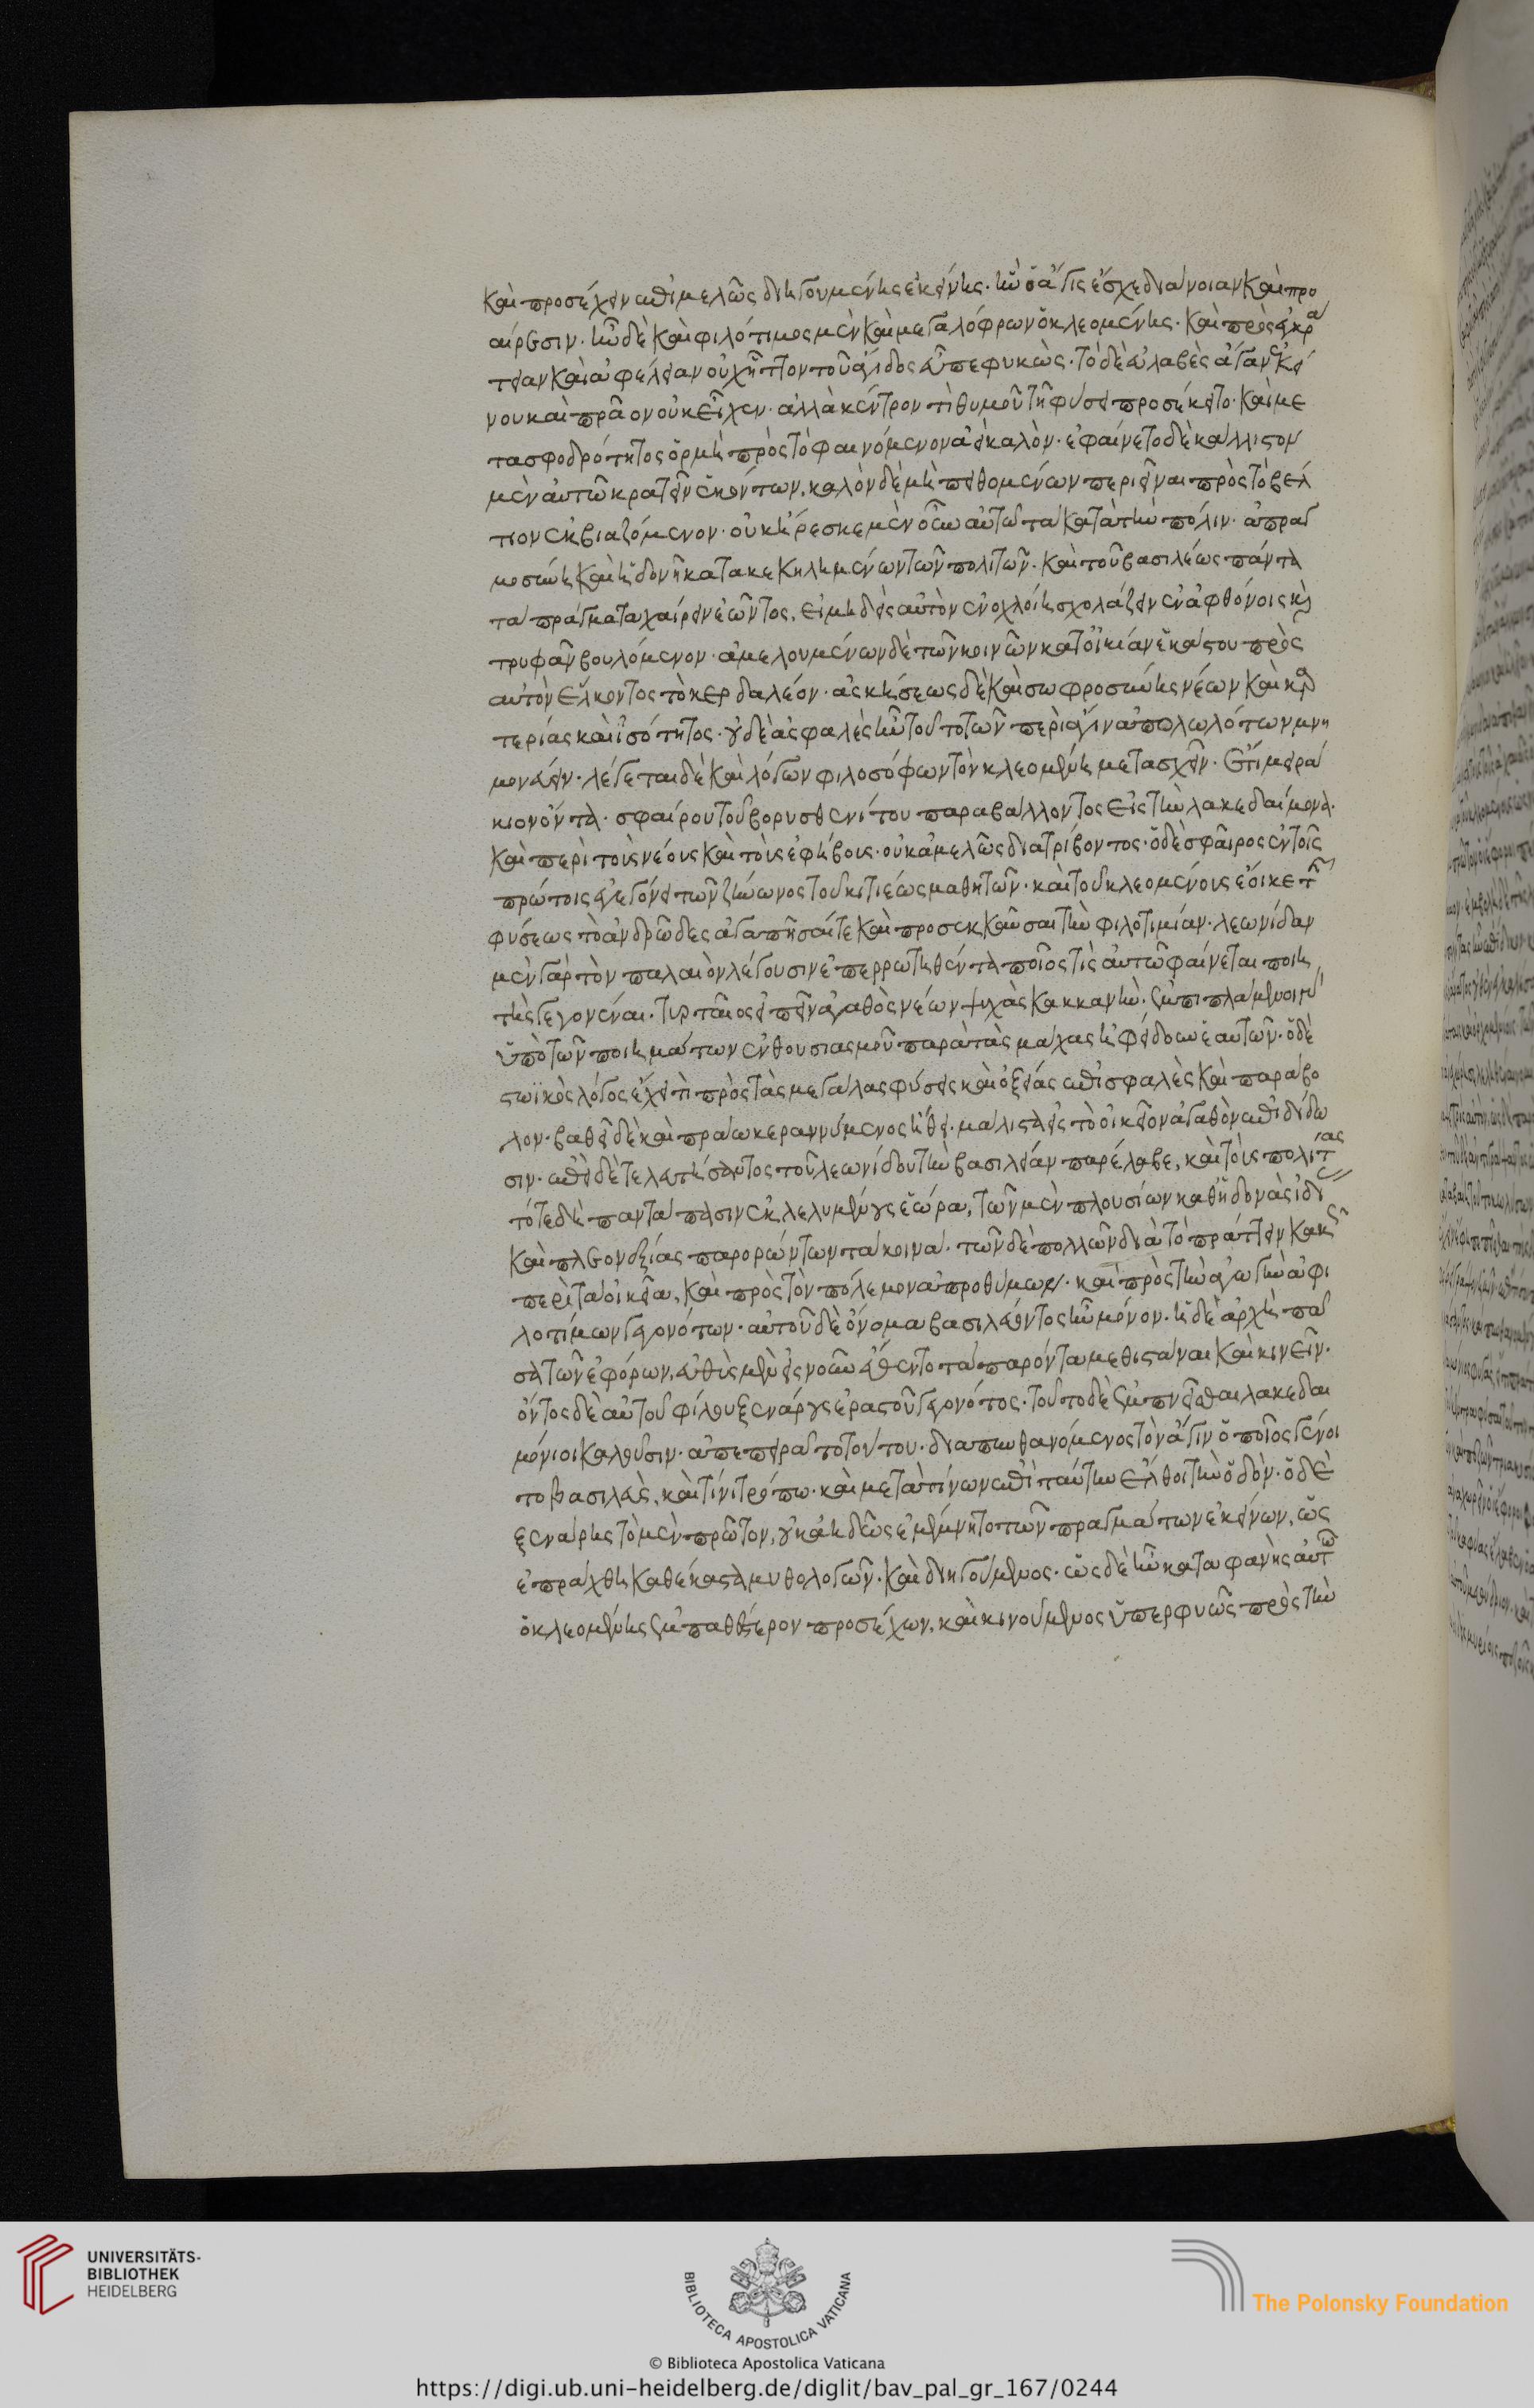 καὶ προσέχειν ἐπιμελῶς διηγουμένης ἐκείνης. ἣν ὁ ἄγις ἔσχε διάνοιαν καὶ προ
αίρεσιν. ἦν δὲ καὶ φιλότιμος μὲν καὶ μεγαλόφρων ὁ κλεομένης. καὶ πρὸς ἐγκρά
τειαν καὶ ἀφέλειαν οὐχ ἧττον τοῦ ἄγιδος εὖ πεφυκὼς. τὸ δὲ εὐλαβὲς ἄγαν ἐκεί
νου καὶ πρᾶον οὐκ εἶχεν. ἀλλὰ κέντρον τὶ θυμοῦ τῆ φύσει προσήκειτο. καὶ με
τα σφοδρότητος ὁρμὴ πρὸς τὸ φαινόμενον ἀεὶ καλὸν. ἐφαίνετο δὲ κάλλιστον
μὲν αὐτῶ κρατεῖν ἑκόντων, καλὸν δὲ μὴ πειθομένων περιεῖναι πρὸς τὸ βέλ
τιον ἐκβιαζόμενον. οὐκ ἤρεσκε μὲν οὖν αὐτῶ τὰ κατὰ τὴν πόλιν. ἀπραγ
μοσύνη καὶ ἡδονῆ κατακεκηλημένων τῶν πολιτῶν. καὶ τοῦ βασιλέως πάντα
τὰ πράγματα χαίρειν ἐῶντος, εἰ μηδεὶς αὐτὸν ἐνοχλοίη σχολάζειν ἐν ἀφθόνοις καὶ
τρυφᾶν βουλόμενον. ἀμελουμένων δὲ τῶν κοινῶν κατ' οἰκίαν ἑκάστου πρὸς
αὐτὸν ἕλκοντος τὸ κερδαλέον. ἀσκήσεως δὲ καὶ σωφροσύνης νέων καὶ καρ
τερίας καὶ ἰσότητος. οὐδὲ ἀσφαλὲς ἦν τοῦτο τῶν περὶ ἄγιν ἀπολωλότων μνη
μονεύειν. λέγεται δὲ καὶ λόγων φιλοσόφων τὸν κλεομένη μετασχεῖν. ἔτι μειρά
κιον ὄντα. σφαίρου τοῦ βορυσθενίτου παραβάλλοντος εἰς τὴν λακεδαίμονα.
καὶ περὶ τοὺς νέους καὶ τοὺς ἐφήβους. οὐκ ἀμελῶς διατρίβοντος. ὁ δὲ σφαῖρος ἐν τοῖς
πρώτοις ἐγεγόνει τῶν ζήνωνος τοῦ κιτιέως μαθητῶν. καὶ τοῦ κλεομένους ἔοικε τῆς
φύσεως τὸ ἀνδρῶδες ἀγαπῆσαί τε καὶ προσεκκαῦσαι τὴν φιλοτιμίαν. λεωνίδαν
μὲν γὰρ τὸν παλαιὸν λέγουσιν ἐπερρωτηθέντα ποῖος τὶς αὐτῶ φαίνεται ποιη
τὴς γεγονέναι. τυρταῖος εἰπεῖν ἀγαθὸς νέων ψυχὰς κακκανῆν. ἐμπιπλάμενοι γὰρ
ὑπὸ τῶν ποιημάτων ἐνθουσιασμοῦ παρὰ τὰς μάχας ἠφείδουν ἑαυτῶν. ὁ δὲ
στωϊκὸς λόγος ἔχει τὶ πρὸς τὰς μεγάλας φύσεις καὶ ὀξείας ἐπισφαλὲς καὶ παράβο
λον. βαθεῖ δὲ καὶ πράω κεραννύμενος ἤθει. μάλιστα εἰς τὸ οἰκεῖον ἀγαθὸν ἐπιδίδω
σιν. ἐπεὶ δὲ τελευτήσαντος τοῦ λεωνίδου τὴν βασιλείαν παρέλαβε, καὶ τοὺς πολίτας
τότε δὴ παντάπασιν ἐκλελυμένους ἑώρα, τῶν μὲν πλουσίων καθ' ἡδονὰς ἰδί
καὶ πλεονεξίας παρορώντων τὰ κοινά. τῶν δὲ πολλῶν διὰ τὸ πράττειν κακῶς
περὶ τὰ οἰκεῖα, καὶ πρὸς τὸν πόλεμον ἀπροθύμων. καὶ πρὸς τὴν ἀγωγὴν ἀφι
λοτίμων γεγονότων. αὐτοῦ δὲ ὄνομα βασιλεύοντος ἦν μόνον. ἡ δὲ ἀρχὴ πᾶ
σα τῶν ἐφόρων, εὐθὺς μὲν εἰς νοῦν ἔθεντο τὰ παρόντα μεθιστάναι καὶ κινεῖν.
ὄντος δὲ αὐτοῦ φίλου ξενάρους ἐραστοῦ γεγονότος. τοῦτο δὲ ἐμπνεῖσθαι λακεδαι
μόνιοι καλοῦσιν. ἀπεπειρᾶτο τούτου. διαπυνθανόμενος τὸν ἄγιν ὁποῖος γένοι
το βασιλεὺς, καὶ τίνι τρόπω. καὶ μετὰ τίνων ἐπὶ ταύτην ἔλθοι τὴν ὁδὸν. ὁ δὲ
ξενάρης τὸ μὲν πρῶτον, οὐκ ἀηδῶς ἐμέμνητο τῶν πραγμάτων ἐκείνων, ὡς
ἐπράχθη καθ' ἕκαστα μυθολογῶν. καὶ διηγούμενος. ὡς δὲ ἦν καταφανὴς αὐτῶ
ὁ κλεομένης ἐμπαθέστερον προσέχων, καὶ κινούμενος ὑπερφυῶς πρὸς τὴν
UNIVERSITÄTS-
BIBLIOTHEK
HEIDELBERG
BIBLIOTECA APOSTOLICA VATICANA
The Polonsky Foundation
© Biblioteca Apostolica Vaticana
https://digi.ub.uni-heidelberg.de/diglit/bav_pal_gr_167/0244